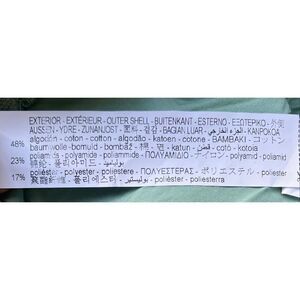 EXTERIOR - EXTÉRIEUR - OUTER SHELL - BUITENKANT - ESTERNO - ΕΞΩΤΕΡΙΚΟ - 外側
AUSSEN - YDRE - ZUNANJOST - 面料 - 겉감 - BAGIAN LUAR - الجزء الخارجي - KANPOKOA
48% algodón - coton - cotton - algodão - katoen - cotone - ΒΑΜΒΑΚΙ - コットン
baumwolle - bomuld - bombaž - 棉 - 면 - katun - قطن - cotó - kotoia
23% poliamida - polyamide - polyamide - poliamida - polyamide - poliammide - ΠΟΛΥΑΜΙΔΙΟ - ナイロン - polyamid - polyamid
poliamid - 폴리아미드 - poliamida - بولياميد - poliamida - poliamida
17% poliéster - polyester - polyester - poliéster - polyester - poliestere - ΠΟΛΥΕΣΤΕΡΑΣ - ポリエステル - polyester
폴리에스터 - poliester - بوليستير - polièster - poliesterra